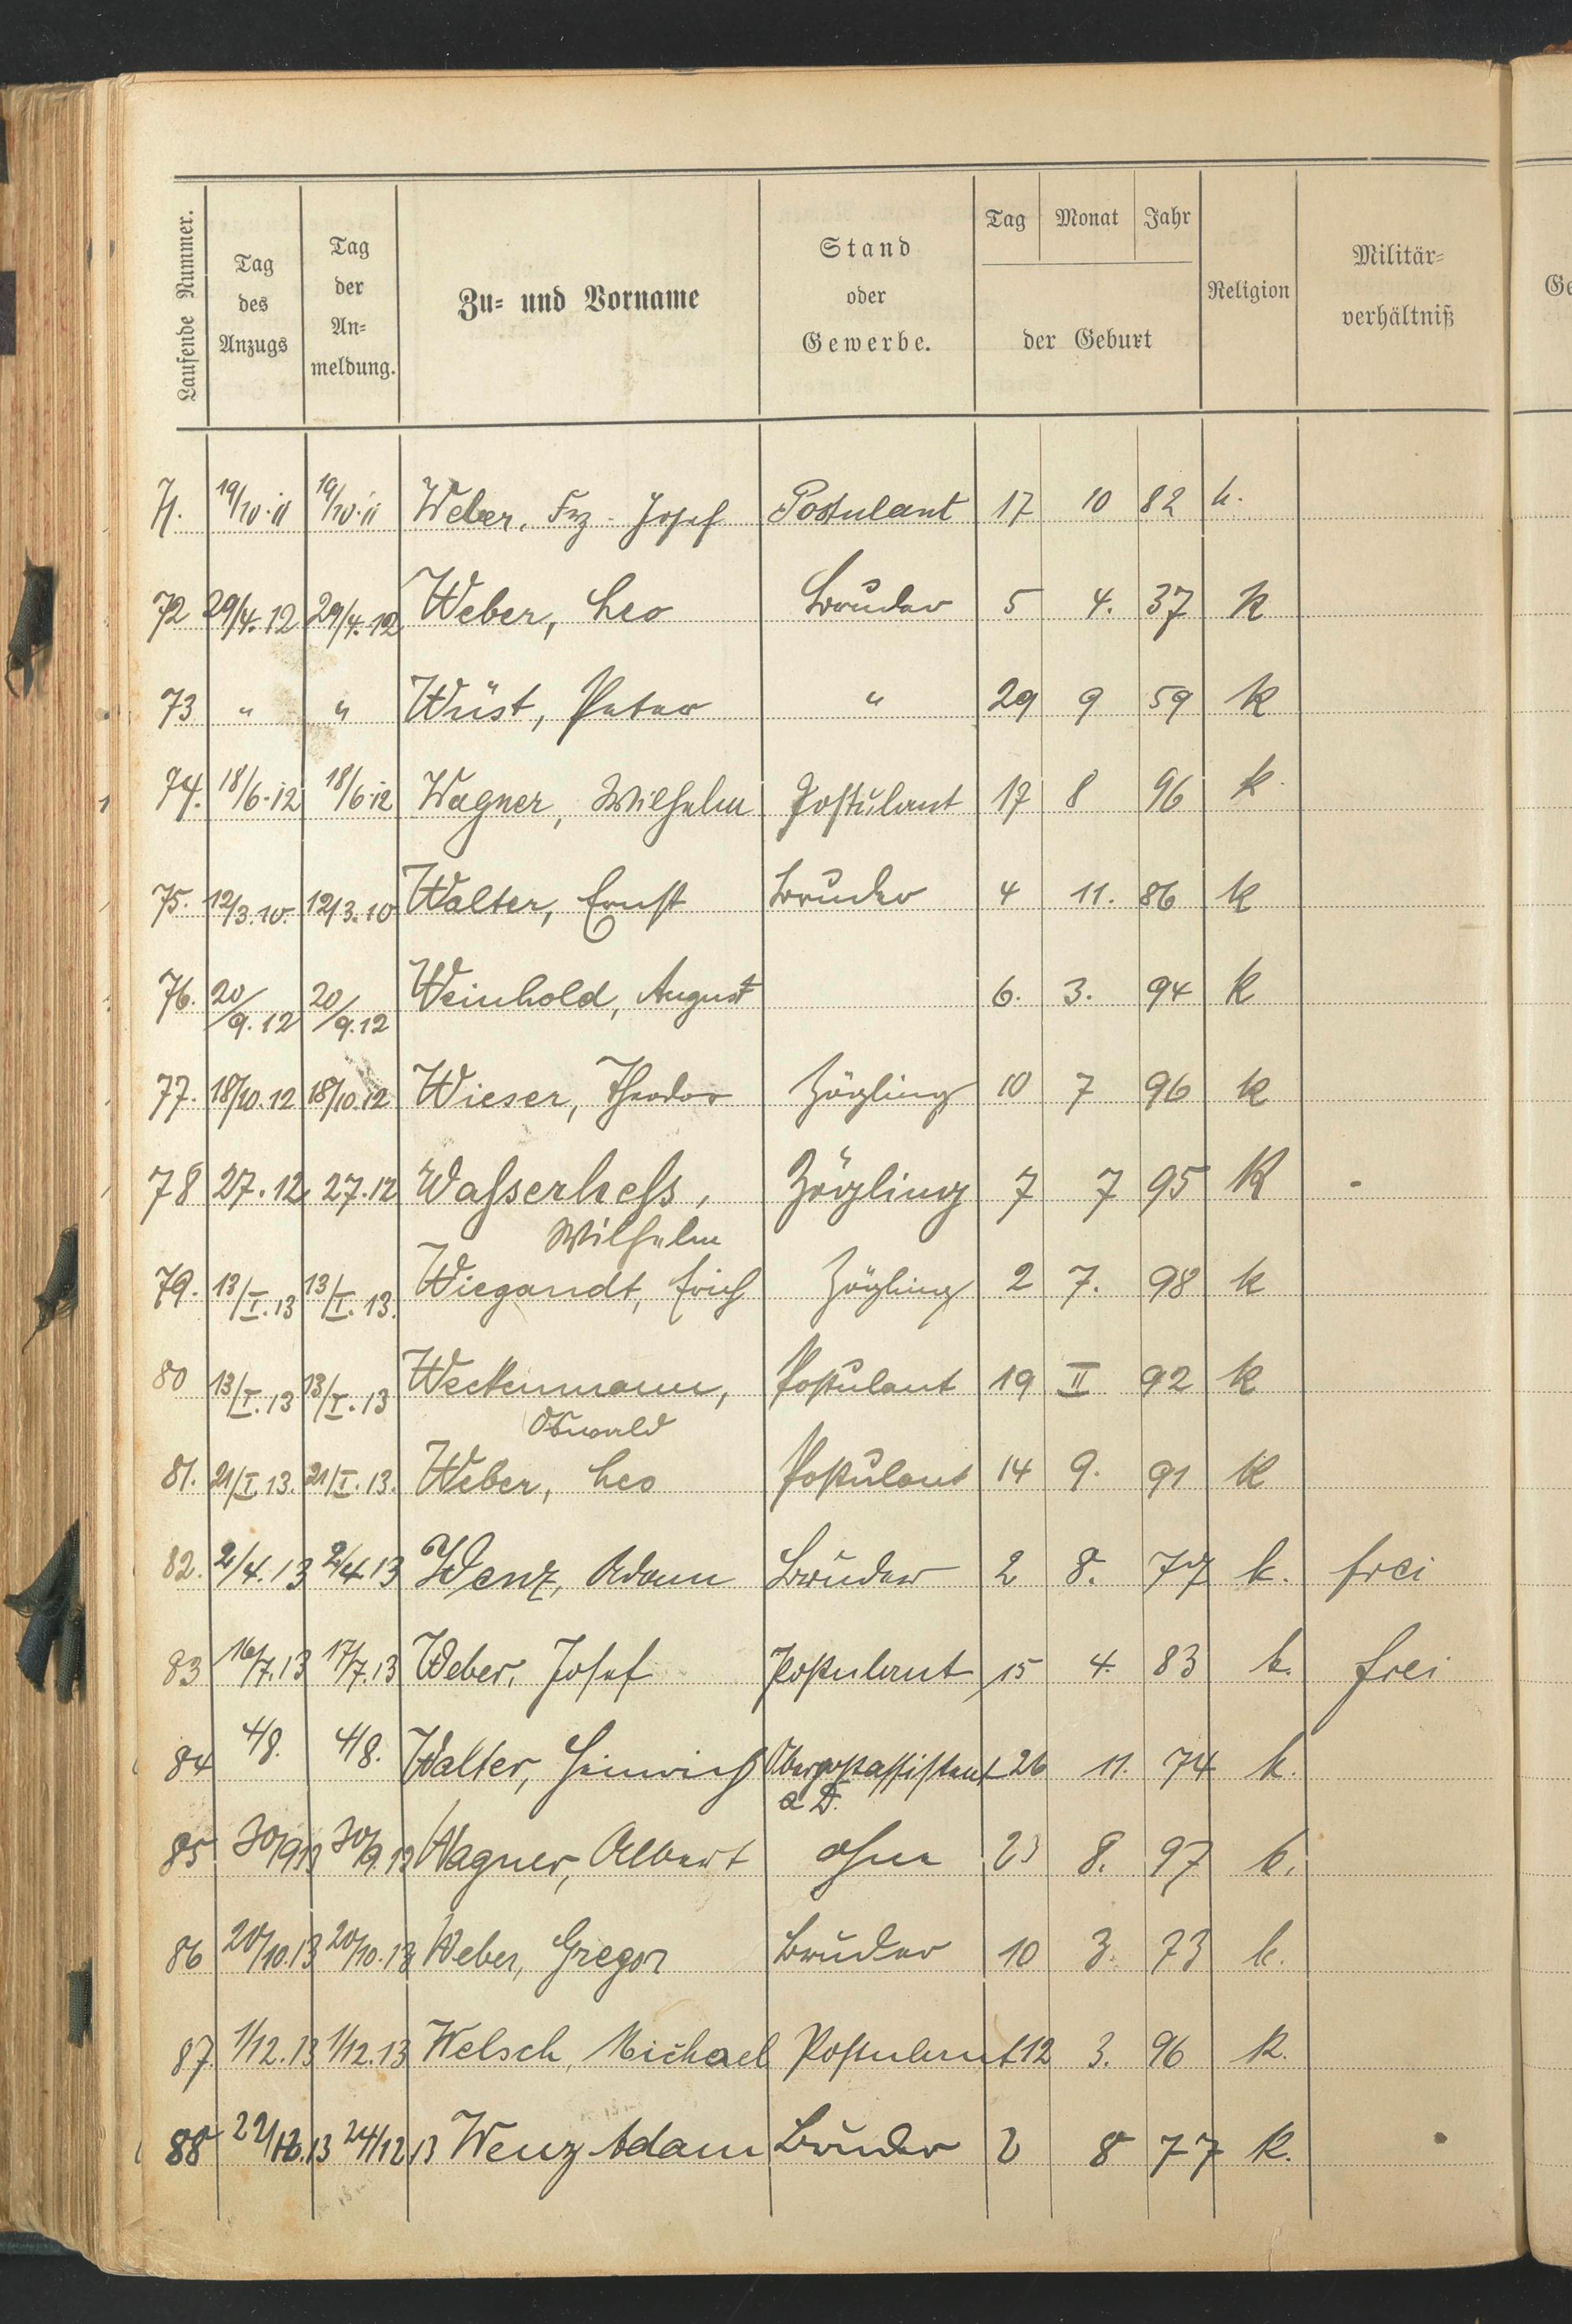 Laufende Nummer.
Tag des Anzugs
Tag der An-meldung.
Zu- und Vorname
Stand oder Gewerbe.
Tag Monat Jahr
der Geburt
Religion
Militär-verhältniß
71. 19/10.11 19/10.11 Weber, Frz. Josef Postulant 17 10 82 k.
72 29/4.12 29/4.12 Weber, Leo Bruder 5 4. 37 k
73 " " Wüst, Peter " 29 9 59 k
74. 18/6.12 18/6.12 Wagner, Wilhelm Postulant 17 8 96 k.
75. 12/3.10. 12/3.10 Walter, Ernst Bruder 4 11. 86 k
76. 20/9.12 20/9.12 Weinhold, August 6. 3. 94 k
77. 18/10.12 18/10.12 Wieser, Theodor Zögling 10 7 96 k
78 27.12 27.12 Waßerheß, Zögling 7 7 95 K -
Wilhelm
79. 13/I.13 13/I.13. Wiegandt, Erich Zögling 2 7. 98 k
80 13/I.13 13/I.13 Weckenmann, Postulant 19 II 92 k
Oswald
81. 21/I.13. 21/I.13. Weber, Leo Postulant 14 9. 91 k
82. 2/4.13 2/4.13 Wenz, Adam Bruder 2 8. 77 k. frei
83 16/7.13 17/7.13 Weber, Josef Postulant 15 4. 83 k. frei
84 4/8. 4/8. Walter, Heinrich Oberpostassistent 26 11. 74 k.
a D.
85 30/9 13 30/9.13 Wagner, Albert ohne 23 8. 97 k.
86 20/10.13 20/10.13 Weber, Gregor Bruder 10 3. 73 k.
87. 1/12.13 1/12.13 Welsch, Michael Postulant 12 3. 96 k.
88 13 24/12 13 Wenz Adam Bruder 2 8 77 k.